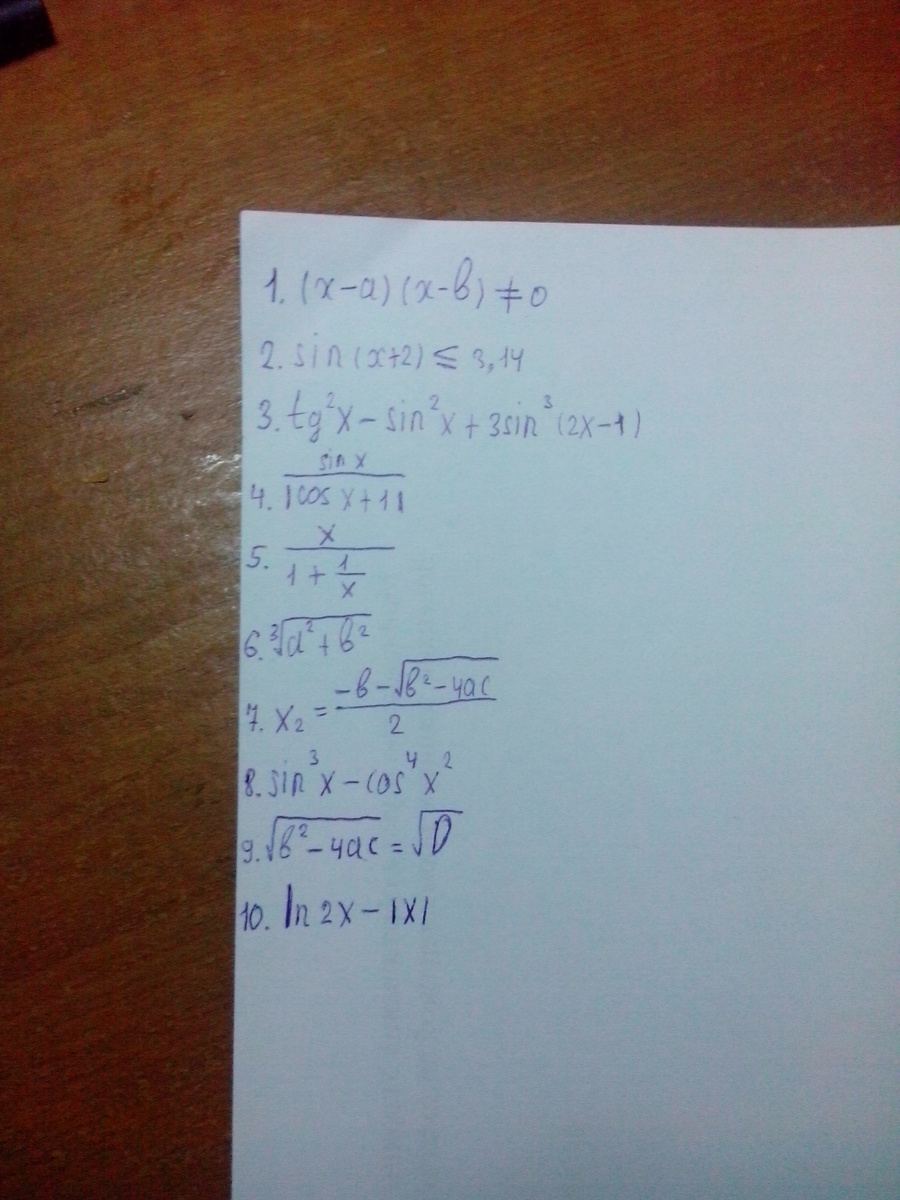 1. (x-a)(x-b) ≠ 0
2. sin(x+2) ≤ 3,14
3. tg²x - sin²x + 3sin³(2x-1)
4. sin x / |cos x+1|
5. x / (1 + 1/x)
6. ∛(a²+b²)
7. x₂ = (-b-√(b²-4ac)) / 2
8. sin³x - cos⁴x²
9. √(b²-4ac) = √D
10. ln 2x - |x|